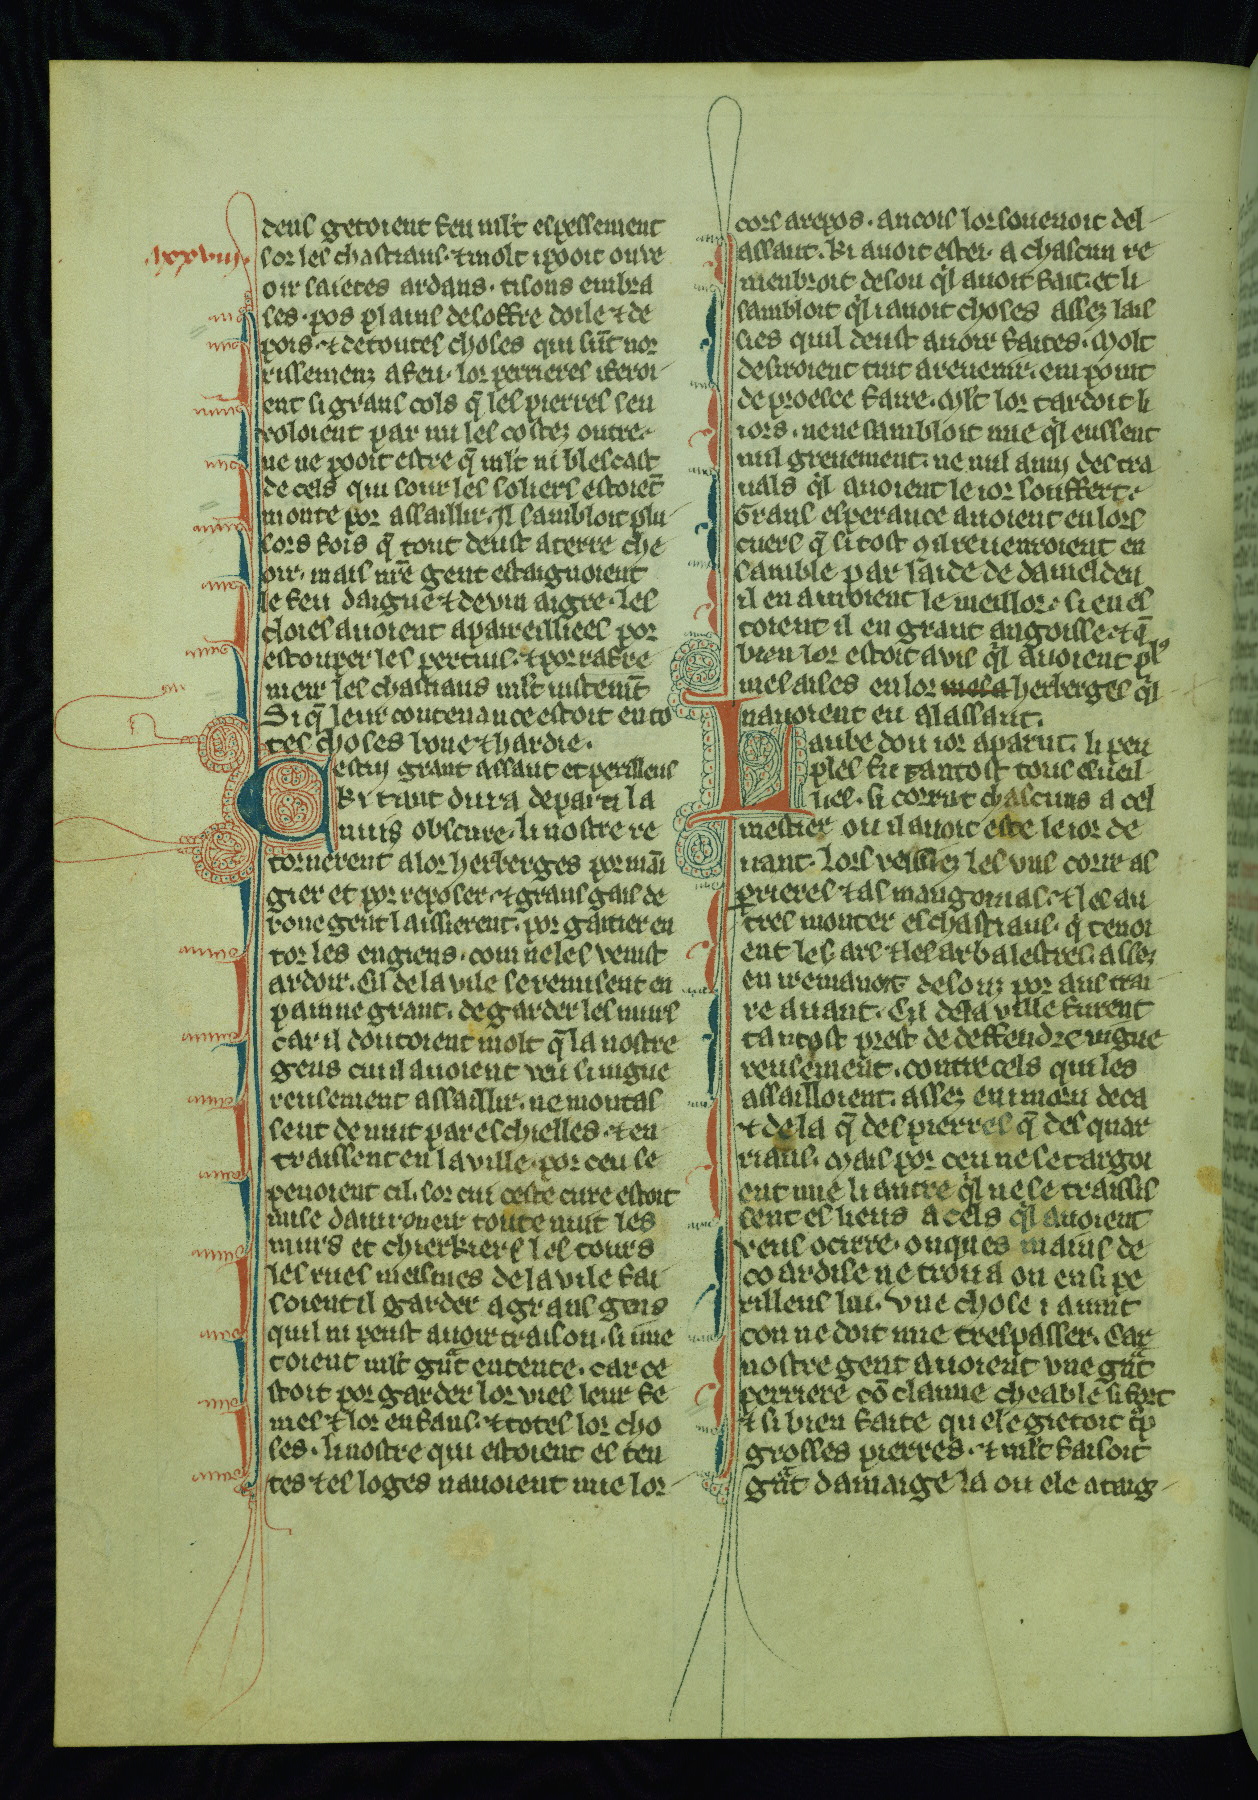 .lxxviii.
dens getoient feu mlt espessement
sor les chastiaus. ⁊ molt i pooit ouvre
oir saietes ardans. tisons embra
ses. pos plains de soffre doile ⁊ de
pois. ⁊ de toutes choses qui sūt nor
rissemenz a feu. lor perrieres iferoi
ent si grans cols q̄ les pierres sen
voloient par mi les costez outre.
ne ne pooit estre q̄ mlt ni blescast
de cels qui sour les soliers estoiēt
monte por assaillir. Il sambloit plu
sors fois q̄ tout deust a terre che
oir. mais nr̄e gent estaignoient
le feu daigue ⁊ de vin aigre. les
cloies avoient apareilliees por
estouper les pertuis. ⁊ por rafre
meir les chastiaus mlt vistemt̄
Si q̄ leur contenance estoit en to
tes choses bone ⁊ hardie.
Cestui grant assaut et perilleus
ki tant dura departi la
nuis obscure. li nostre re
tornerent a lor herberges por mā
gier et por reposer. ⁊ grans gais de
bone gent laissierent. por gaitier en
tor les engiens. com ne les venist
ardoir. Cil de la vile se remisent en
painne grant. de garder les murs
car il doutoient molt q̄ la nostre
gens cui il avoient veu si vigue
reusement assaillir. ne montas
sent de nuit par eschielles. ⁊ en
traissent en la ville. por ceu se
penoient cil. sor cui ceste cure estoit
mise davironeir toute nuit les
murs et chierkiers les tours
les rues meismes de la vile fai
soient il garder a grans gens
quil ni peust avoir traison. si me
toient mlt gͣnt entente. car ce
stoit por garder lor vies leur fe
mes ⁊ lor enfans. ⁊ totes lor cho
ses. li nostre qui estoient es ten
tes ⁊ es loges navoient mie lor
cors a repos. ancois lor sovenoit del
assaut. ki avoit estei. a chascun re
menbroit de sou q̄l avoit fait. et li
sambloit q̄l i avoit choses assez lais
sies quil deust avoir faites. Molt
desiroient tuit a revenir. en point
de proesce faire. mlt lor tardoit li
iors. ne ne sambloit mie q̄l eussent
nul grevement. ne nul anui des tra
vals q̄l avoient le ior souffert.
Grans esperance avoient en lors
cuers q̄ si tost q̄l revenroient en
samble par laide de dameldeu
il en avroient le meillor. si en es
toient il en grant angoisse. ⁊ q̄
bien lor estoit avis q̄l avoient pl9
mesaises en lor mesa herberges q̄l
navoient eu a lassaut.
Laube dou ior aparut. li peu
ples fu tantost tous esveil
liez. si corrut chascuns a cel
mestier ou il avoit este le ior de
vant. lors veissiez les uns corir as
prieres ⁊ as mangonias. ⁊ les au
tres monter es chastiaus. q̄ tenoi
ent les ars ⁊ les arbalestres. assez
en i remanoit desouz por aus trai
re avant. Cil de la ville furent
tantost prest de deffendre vigue
reusement. contre cels qui les
assailloient. assez en i moru deca
⁊ de la q̄ des pierres q̄ des quar
riaus. Mais por ceu ne se targoi
ent mie li autre q̄l ne se traissis
sent es lieus a cels q̄l avoient
veus ocirre. onques mains de
coardise ne trova on en si pe
rilleus liu. Une chose i avint
con ne doit mie trespasser. Car
nostre gent avoient une gͣnt
perriere cō claime cheable si fort
⁊ si bien faite quele gietoit trop
grosses pierres. ⁊ mlt faisoit
gͣnt damaige la ou ele ataig